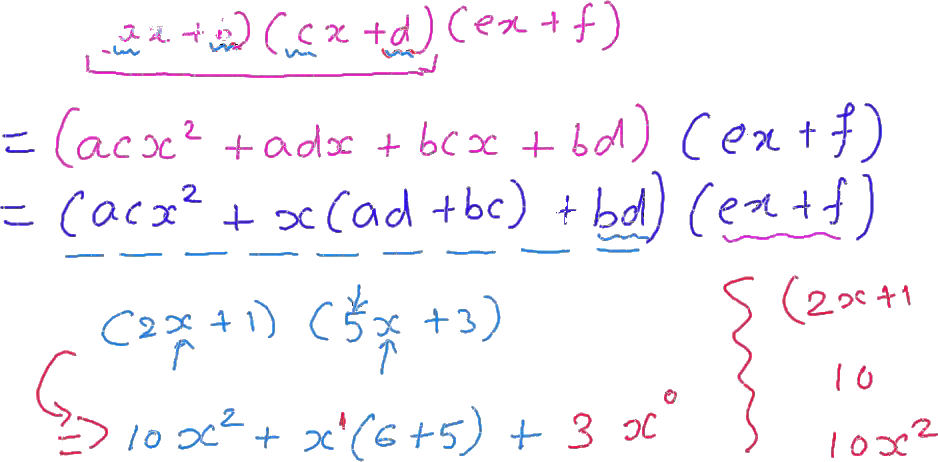 ax + b) (cx + d) (ex + f)
= (acx² + adx + bcx + bd) (ex + f)
= (acx² + x(ad + bc) + bd) (ex + f)
(2x + 1) (5x + 3)
=> 10x² + x¹(6+5) + 3x⁰
(2x + 1
10
10x²